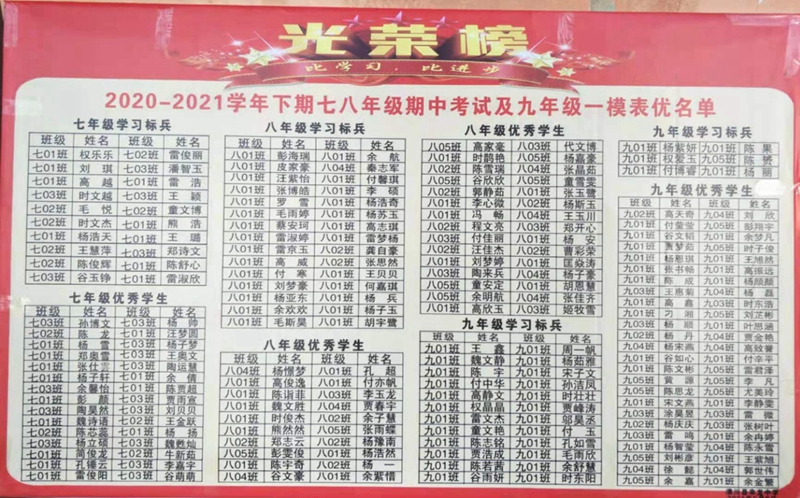 光荣榜
比学习,比进步
2020-2021学年下期七八年级期中考试及九年级一模表优名单
七年级学习标兵
班级 姓名 班级 姓名
七01班 权乐乐 七02班 雷俊丽
七01班 刘琪 七03班 潘智玉
七01班 高越 七01班 雷浩
七03班 时文越 七03班 王颖
七02班 毛悦 七02班 童文博
七02班 时文杰 七01班 熊浩
七01班 杨浩天 七01班 王璐
七02班 王慧萍 七03班 郑诗文
七02班 陈俊辉 七01班 陈舒心
七03班 谷玉铮 七01班 雷淑欣
七年级优秀学生
班级 姓名 班级 姓名
七03班 孙博文 七03班 杨帅
七02班 陈龙 七02班 汪梦圆
七01班 杨雪 七03班 杨子梦
七01班 郑奥雪 七03班 王奥文
七01班 张仕雲 七03班 陶运慧
七01班 杨子轩 七01班 余倩
七03班 余馨怡 七01班 陈贾超
七01班 彭颜 七01班 贾雨宣
七03班 陶昊然 七03班 刘贝贝
七01班 魏诗语 七02班 王金跃
七02班 陈芯蕊 七01班 杨扬
七03班 杨立硕 七03班 魏甦灿
七01班 简俊龙 七02班 牛新茹
七01班 孔锤云 七03班 李嘉宇
七01班 雷俊阳 七03班 谷萌萌
八年级学习标兵
班级 姓名 班级 姓名
八01班 彭海瑞 八01班 余航
八01班 皮家豪 八04班 秦志军
八01班 汪紫怡 八01班 付馨琪
八01班 张博皓 八01班 李硕
八01班 罗雪 八01班 杨浩奇
八01班 毛雨婷 八01班 杨苏玉
八01班 蔡安珂 八03班 高大凯
八01班 雷淑婷 八01班 雷梦杨
八01班 雷京玉 八02班 龚自豪
八01班 高威 八02班 张思然
八01班 付寒 八01班 王贝贝
八01班 刘梦豪 八01班 何嘉琪
八01班 杨亚东 八01班 杨兵
八01班 余欢欢 八01班 杨子玉
八01班 毛斯昊 八01班 胡宇鹭
八年级优秀学生
班级 姓名 班级 姓名
八04班 杨憬梦 八01班 孔超
八01班 高俊逸 八01班 付亦帆
八01班 陈诣菲 八03班 李玉龙
八01班 魏文胜 八04班 贾春宇
八01班 时俊杰 八02班 余子慧
八01班 熊然然 八05班 张雨蝶
八02班 郑志云 八02班 杨豫南
八05班 彭雯俊 八05班 杨浩然
八01班 陈宇奇 八02班 杨一
八04班 谷文豪 八01班 余紫惜
八年级优秀学生
班级 姓名 班级 姓名
八05班 高家毫 八03班 代文博
八01班 时鹊艳 八05班 杨嘉豪
八02班 陈雪瑞 八04班 张晶茹
八05班 谷欣欣 八05班 童雪雯
八02班 郭静茹 八05班 张玉鹭
八01班 李心微 八02班 杨斯玉
八01班 冯畅 八04班 王玉川
八02班 程文亮 八03班 郑开心
八03班 付佳丽 八01班 杨安
八02班 汪佳杰 八02班 曹彩荣
八01班 刘梦婷 八01班 豆焱涛
八03班 陶来兵 八04班 杨子豪
八05班 童安定 八01班 胡恩慧
八05班 余明航 八04班 张佳齐
八01班 高欣玉 八03班 姬牧雪
九年级学习标兵
班级 姓名 班级 姓名
九01班 王鑫 九01班 周一帆
九01班 魏文静 九05班 杨茹雅
九01班 陈宇 九01班 宋子文
九01班 付中华 九01班 孙洁凤
九01班 高静文 九01班 时壮壮
九01班 权晶晶 九01班 贾峰涛
九01班 雷文杰 九01班 邬昊丞
九01班 童文艳 九01班 付杰
九01班 陈志铭 九01班 孔如雪
九01班 贾浩成 九01班 毛雨欣
九01班 陈若茜 九01班 余舒慧
九01班 谷雨妍 九01班 时东阳
九年级学习标兵
九01班 杨紫妍 九01班 陈果
九01班 权爱玉 九05班 陈赟
九01班 付博睿 九01班 杨丽
九年级优秀学生
班级 姓名 班级 姓名
九02班 高天奇 九04班 刘欣
九01班 付萤莹 九05班 彭翔宇
九01班 谷文韬 九05班 余梦凡
九01班 贾梦茹 九05班 时子俊
九01班 杨恩琪 九01班 王旭然
九01班 张书畅 九01班 高振远
九01班 陈成 九01班 杨颜颜
九03班 王惠菊 九04班 杨磊
九01班 高鑫 九01班 时东浩
九01班 刁湘 九05班 刘芷彬
九03班 杨顺 九01班 叶思涵
九02班 杨丹 九04班 贾金艳
九04班 杨宋高 九04班 高致薯
九01班 谷如心 九01班 付幸平
九01班 陈文彬 九01班 雷君泽
九05班 黄源 九05班 李凡
九05班 陈思龙 九05班 尤美玲
九05班 宋文高 九01班 李静雯
九03班 涂昊昱 九03班 雷微
九02班 杨庆庆 九03班 张树叶
九03班 雷鸣 九01班 余冉婷
九01班 杨智莹 九04班 陈永雪
九01班 刘彬彦 九01班 王紫旭
九04班 徐懿 九04班 郭世伟
九05班 余嘉 九01班 余金繁